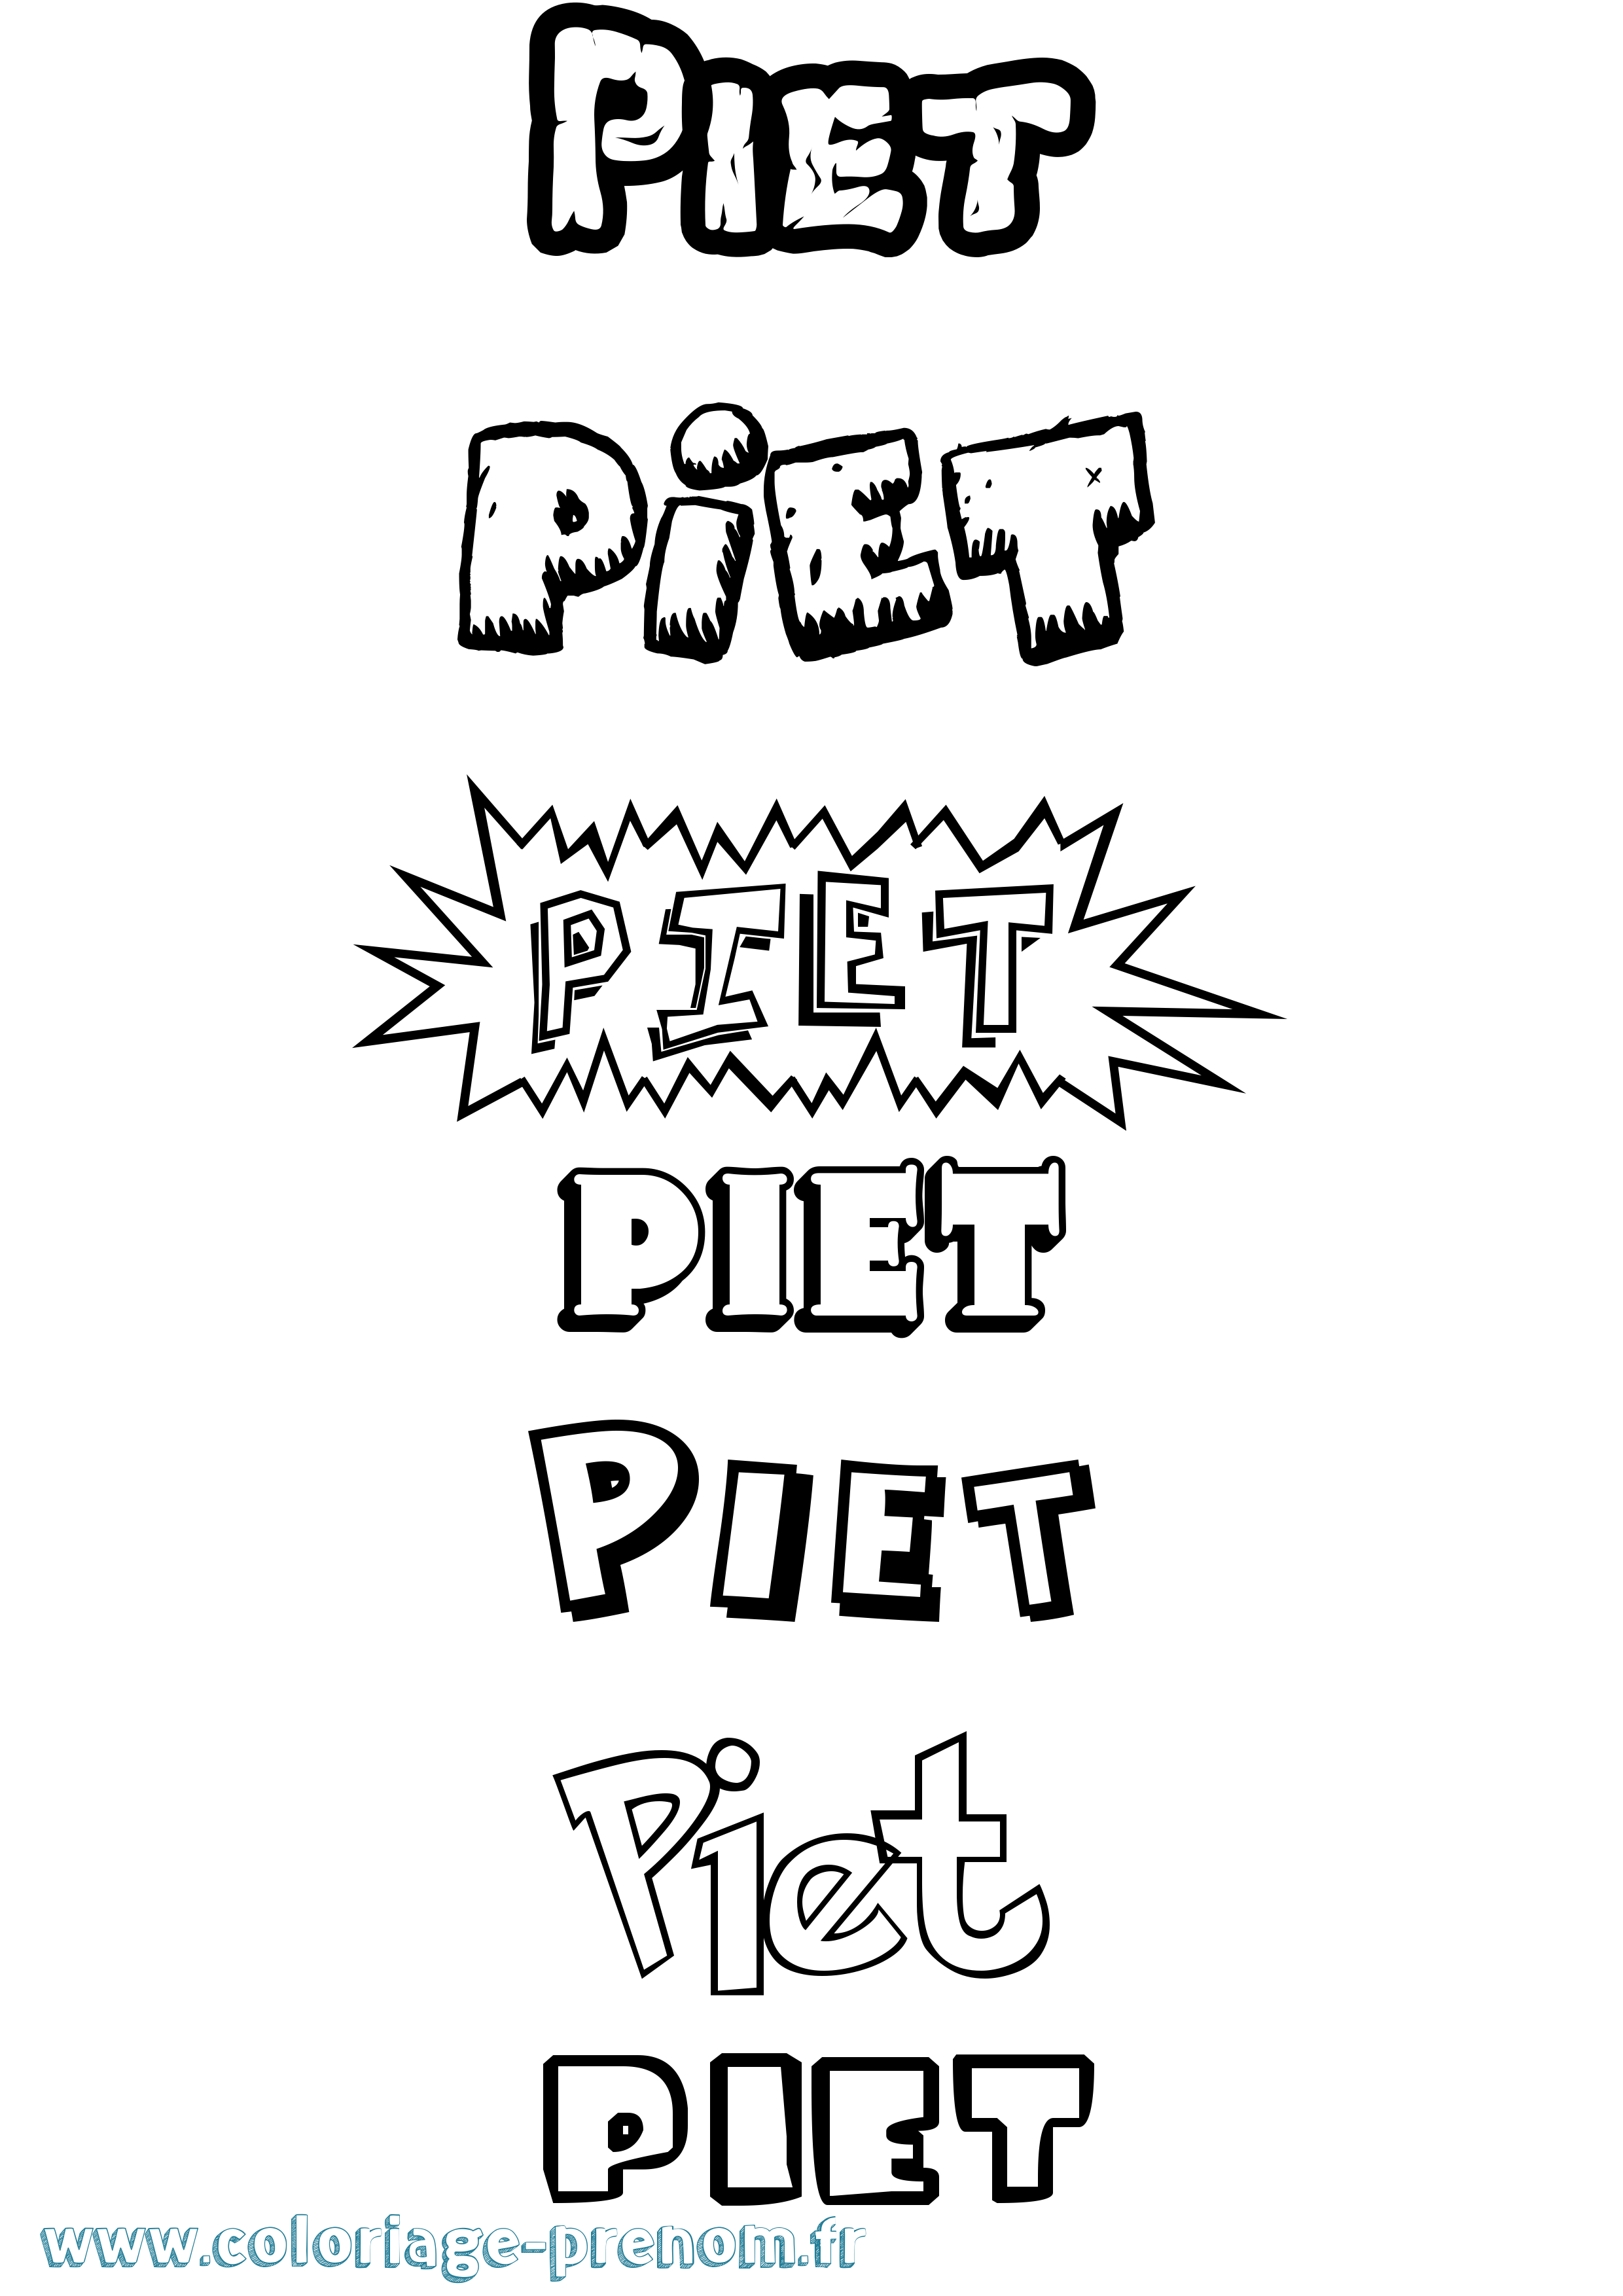 PIET
PiET
PIET
PIET
PIET
Piet
PIET
www.coloriage-prenom.fr